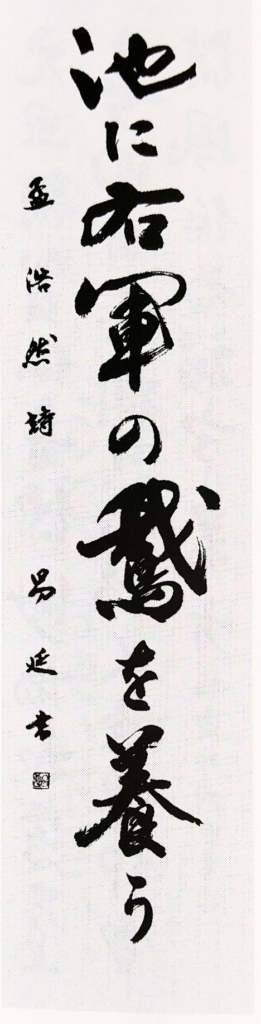 池に右軍の鵞を養う
孟浩然詩 易延書